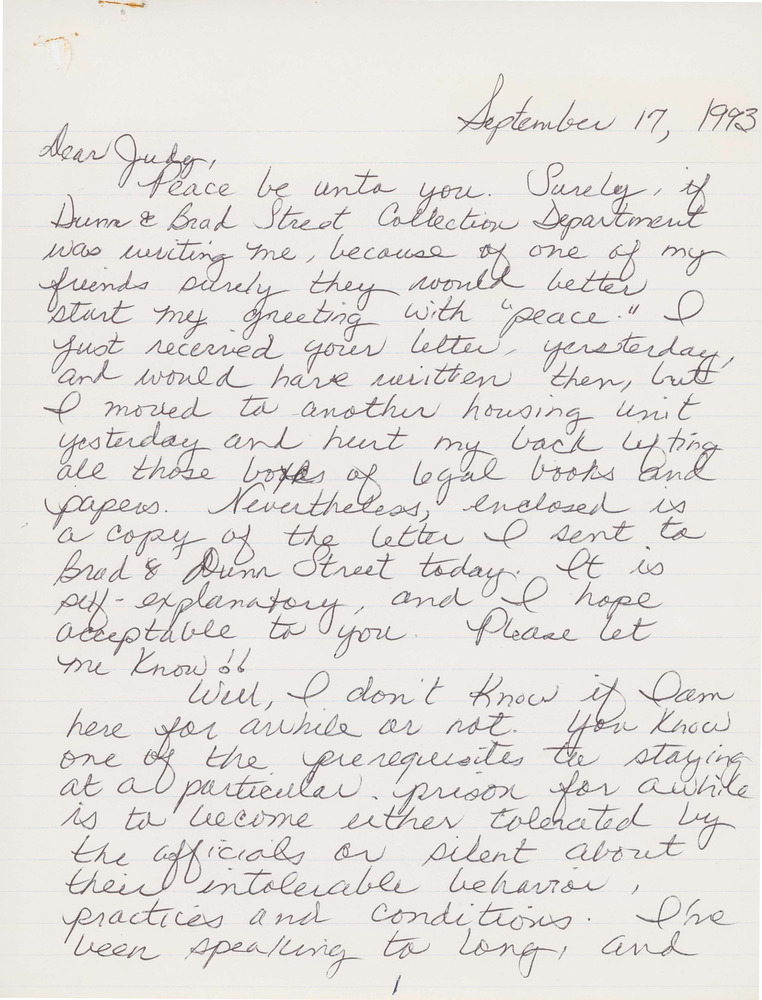 September 17, 1993
Dear Judy,
Peace be unto you. Surely, if
Dunn & Brad Street Collection Department
was writing me, because of one of my
friends surely they would better
start my greeting with "peace." I
just received your letter, yersterday,
and would have written then, but
I moved to another housing unit
yesterday and hurt my back lifting
all those boxes of legal books and
papers. Nevertheless, enclosed is
a copy of the letter I sent to
Brad & Dunn Street today. It is
self-explanatory, and I hope
acceptable to you. Please let
me know!!
Well, I don't know if I am
here for awhile or not. You know
one of the prerequisites to staying
at a particular prison for awhile
is to become either tolerated by
the officials or silent about
their intolerable behavior,
practices and conditions. I've
been speaking to long, and
1